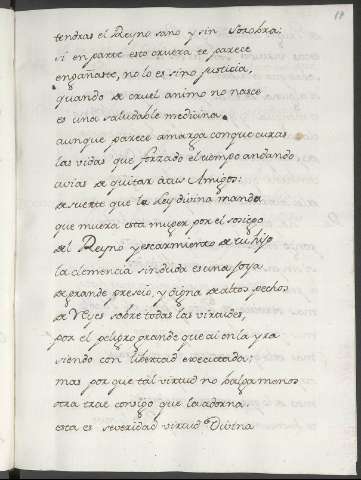 14
tendras el Reyno sano y sin soçobra:
si en parte esto crueza te parece
engañaste, no lo es sino justicia,
quando de cruel animo no nasce
es una saludable medicina
aunque parece amarga con que curas
las vidas que forzado el tiempo andando
avias de quitar a tus Amigos:
de suerte que la Ley divina manda
que muera esta muger por el sosiego
del Reyno y escarmiento de tu hijo
la clemencia sin duda es una joya
de grande prescio, y digna de altos pechos
de Reyes sobre todas las virtudes,
por el peligro grande que ai en la yra
siendo con libertad executada;
mas por que tal virtud no valga menos
otra trae consigo que la adorna.
esta es severidad virtud Divina